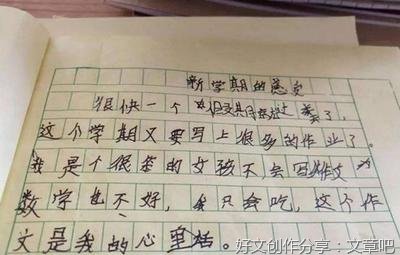 新学期的感受
很快一个 过去了，
这个学期又要写上很多的作业了。
我是个很笨的女孩不会写作文
数学也不好，我只会吃，这个作
文是我的心里话。
好文创作分享：文章吧